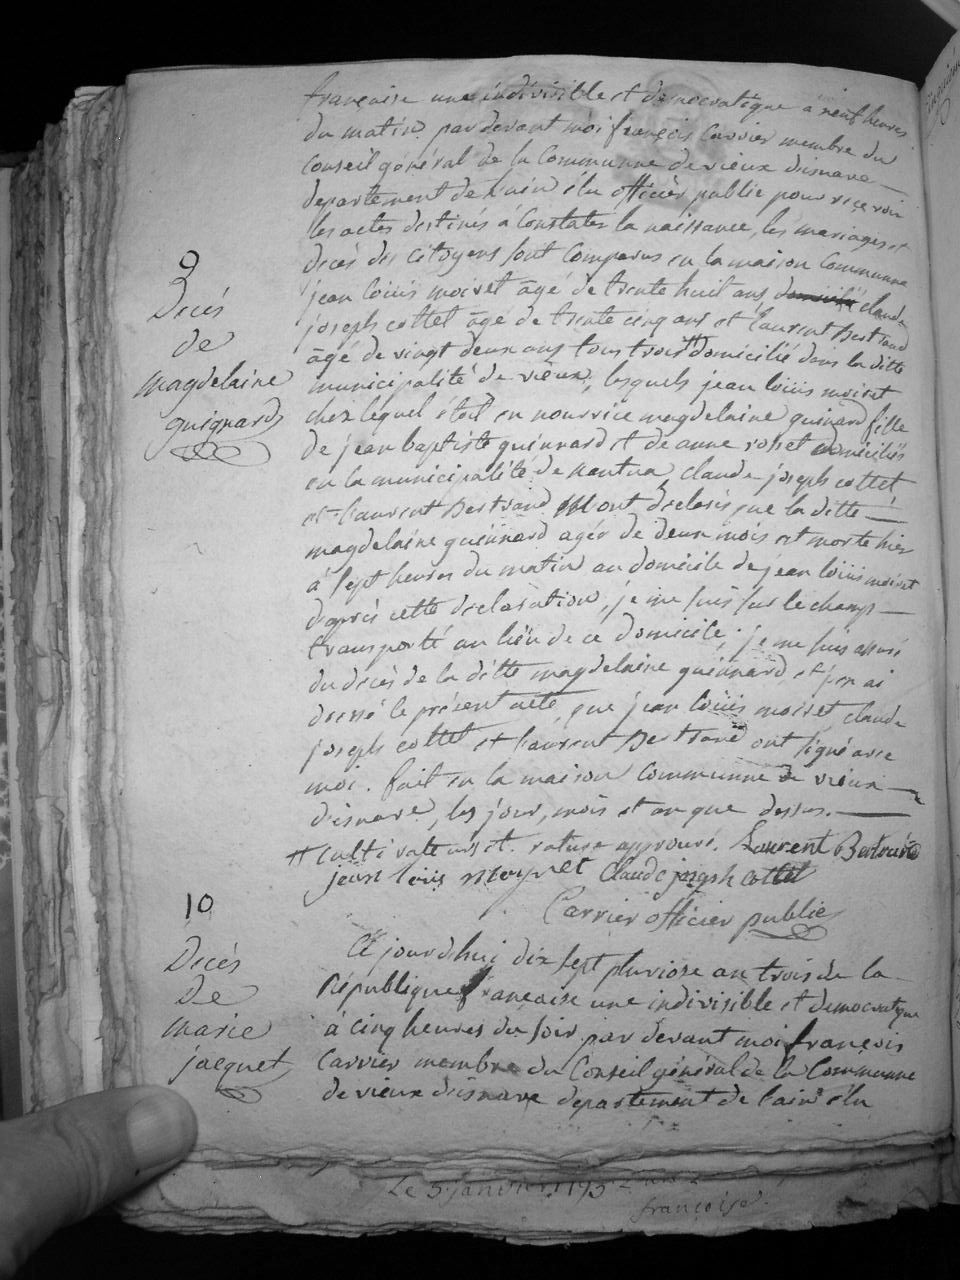 française une indivisible et démocratique a neuf heures
du matin pardevant moi françois Carrier membre du
Conseil général de la Communne de vieux disnave
departement de l'ain élu officier public pour recevoir
les actes destinés à Constater la naissance, les mariages et
decès des citoyens sont Comparus en la maison Communne
9
Decès
de
magdelaine
guignard
jean loüis moiret âgé de trente huit ans, claude
joseph cottet âgé de trente cinq ans et laurent Bertrand
âgé de vingt deux ans tous trois # domicilié dans la ditte
municipalité de vieux, lesquels jean loüis moiret
chez lequel étoit en nourrice magdelaine guinard fille
de jean baptiste guinnard et de anne rosset domiciliés
en la municipalité de nantua, claude joseph cottet
et laurent Bertrand m'ont declaré que la ditte
magdelaine guinnard agée de deux mois est morte hier
à sept heures du matin au domicile de jean loüis moiret
d'après cette declaration, je me suis sur le champ
transporté au lieu de ce domicile, je me suis assuré
du decès de la ditte magdelaine guinnard, et j'en ai
dressé le présent acte, que jean loüis moiret claude
joseph cottet et laurent Bertrand ont signé avec
moi. fait en la maison communne de vieux
disnave, les jour, mois et an que dessus.
# cultivateurs et. rature approuvé. Laurent Bertrand
jean loüis moyret Claude joseph cottet
Carrier officier public
10
Decès
De
marie
jacquet
Ce jourd'hui dix sept pluviose an trois de la
République française une indivisible et democratique
à cinq heures du soir, par devant moi françois
Carrier membre du Conseil général de la Communne
de vieux disnave département de l'ain élu
Le 5 janvier 1793
françoise